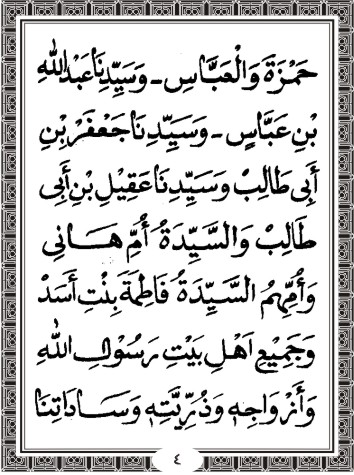 حَمْزَةَ وَالْعَبَّاسِ - وَسَيِّدِنَا عَبْدِ اللهِ
بْنِ عَبَّاسٍ - وَسَيِّدِنَا جَعْفَرْ بْنِ
أَبِى طَالِبْ وَسَيِّدِنَا عَقِيلِ بْنِ أَبِى
طَالِبْ وَالسَّيِّدَةُ أُمِّ هَانِى
وَأُمِّهِمُ السَّيِّدَةُ فَاطِمَةَ بِنْتِ أَسَدْ
وَجَمِيْعِ اَهْلِ بَيْتِ رَسُوْلِ اللهِ
وَأَزْوَاجِهِ وَذُرِّيَّتِهِ وَسَادَاتِنَا
٤